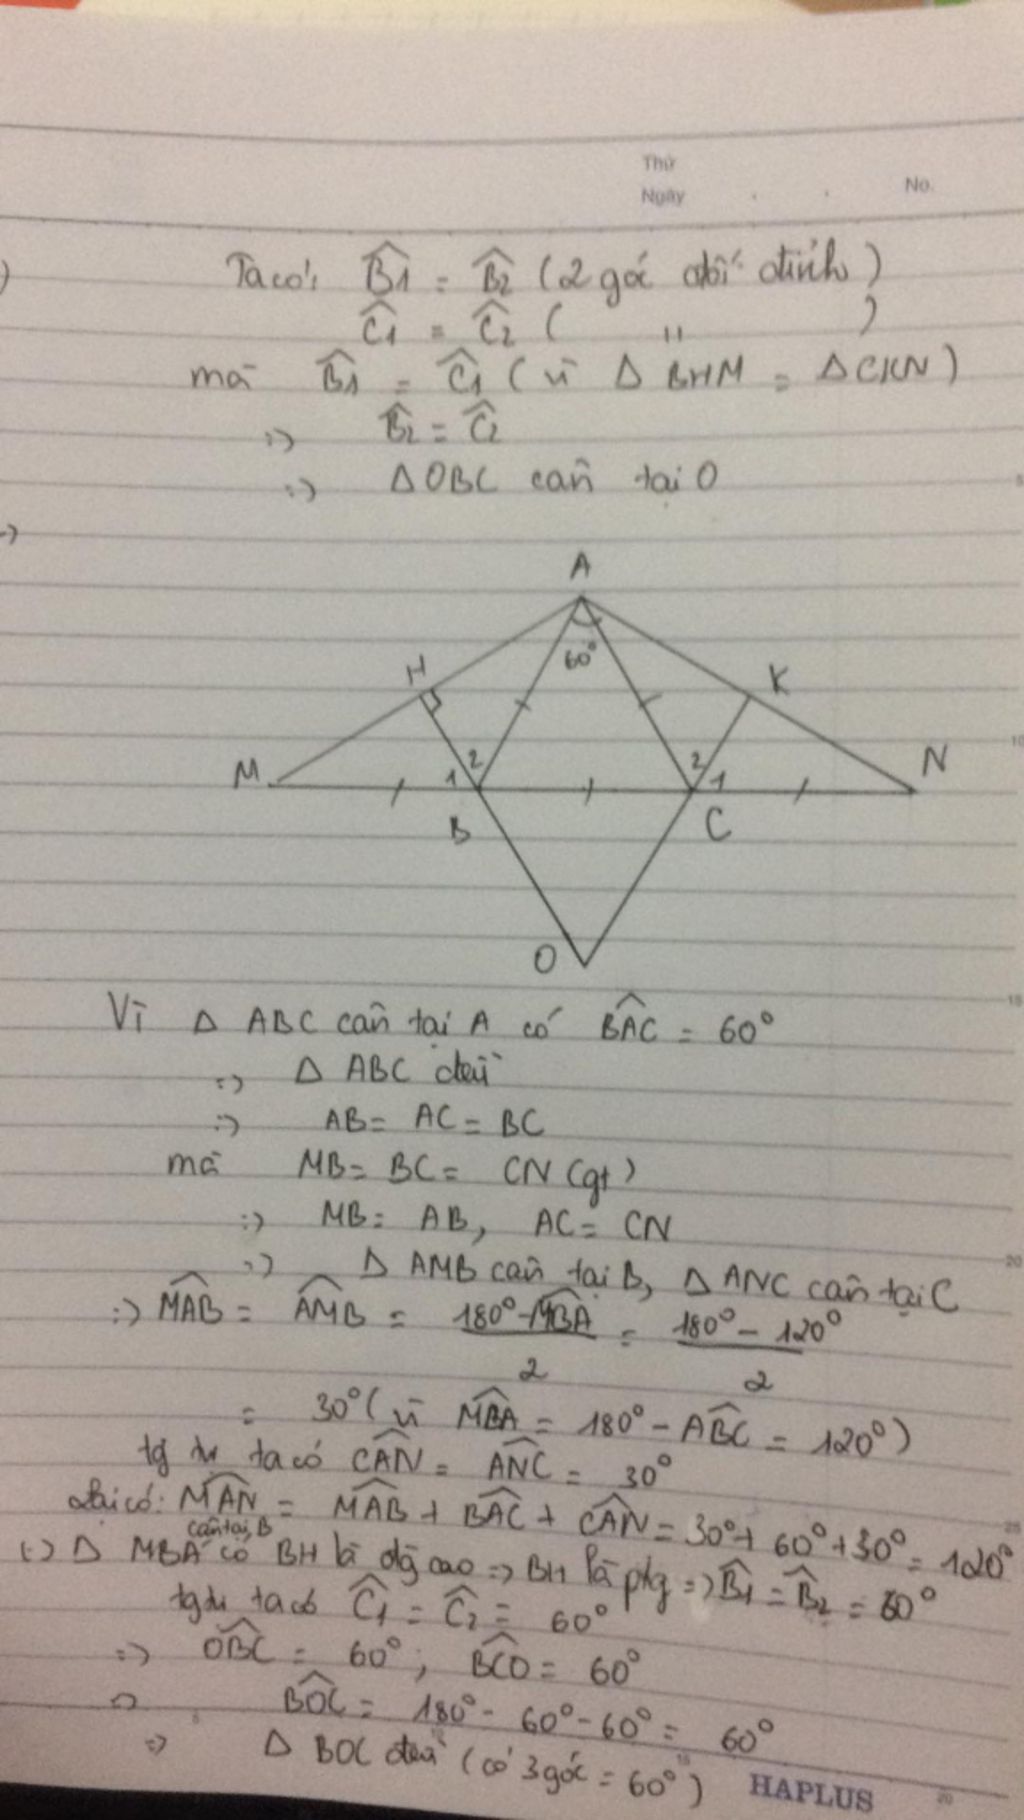 Thứ
Ngày
No.
) Ta có: B̂1 = B̂2 (2 góc đối đỉnh)
Ĉ1 = Ĉ2 ( " )
mà B̂1 = Ĉ1 (vì Δ BHM = ΔCKN)
=> B̂2 = Ĉ2
=> ΔOBC cân tại O
A
60°
H
K
M
N
1 2
2 1
B
C
O
Vì Δ ABC cân tại A có BAC = 60°
=> Δ ABC đều
=> AB = AC = BC
mà MB = BC = CN (gt)
=> MB = AB, AC = CN
=> Δ AMB cân tại B, Δ ANC cân tại C
=> MAB = AMB = (180° - MBA)/2 = (180° - 120°)/2
= 30° (vì MBA = 180° - ABC = 120°)
tg tự ta có CAN = ANC = 30°
Lại có: MAN = MAB + BAC + CAN = 30° + 60° + 30° = 120°
cân tại B
=> Δ MBA có BH là đg cao => BH là pg => B̂1 = B̂2 = 60°
tg tự ta có Ĉ1 = Ĉ2 = 60°
=> OBC = 60°; BCO = 60°
=> BOC = 180° - 60° - 60° = 60°
=> Δ BOC đều (có 3 góc = 60°)
HAPLUS
5
10
15
20
25